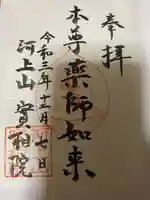 奉拝
本尊薬師如来
令和三年十二月七日
河上山實相院